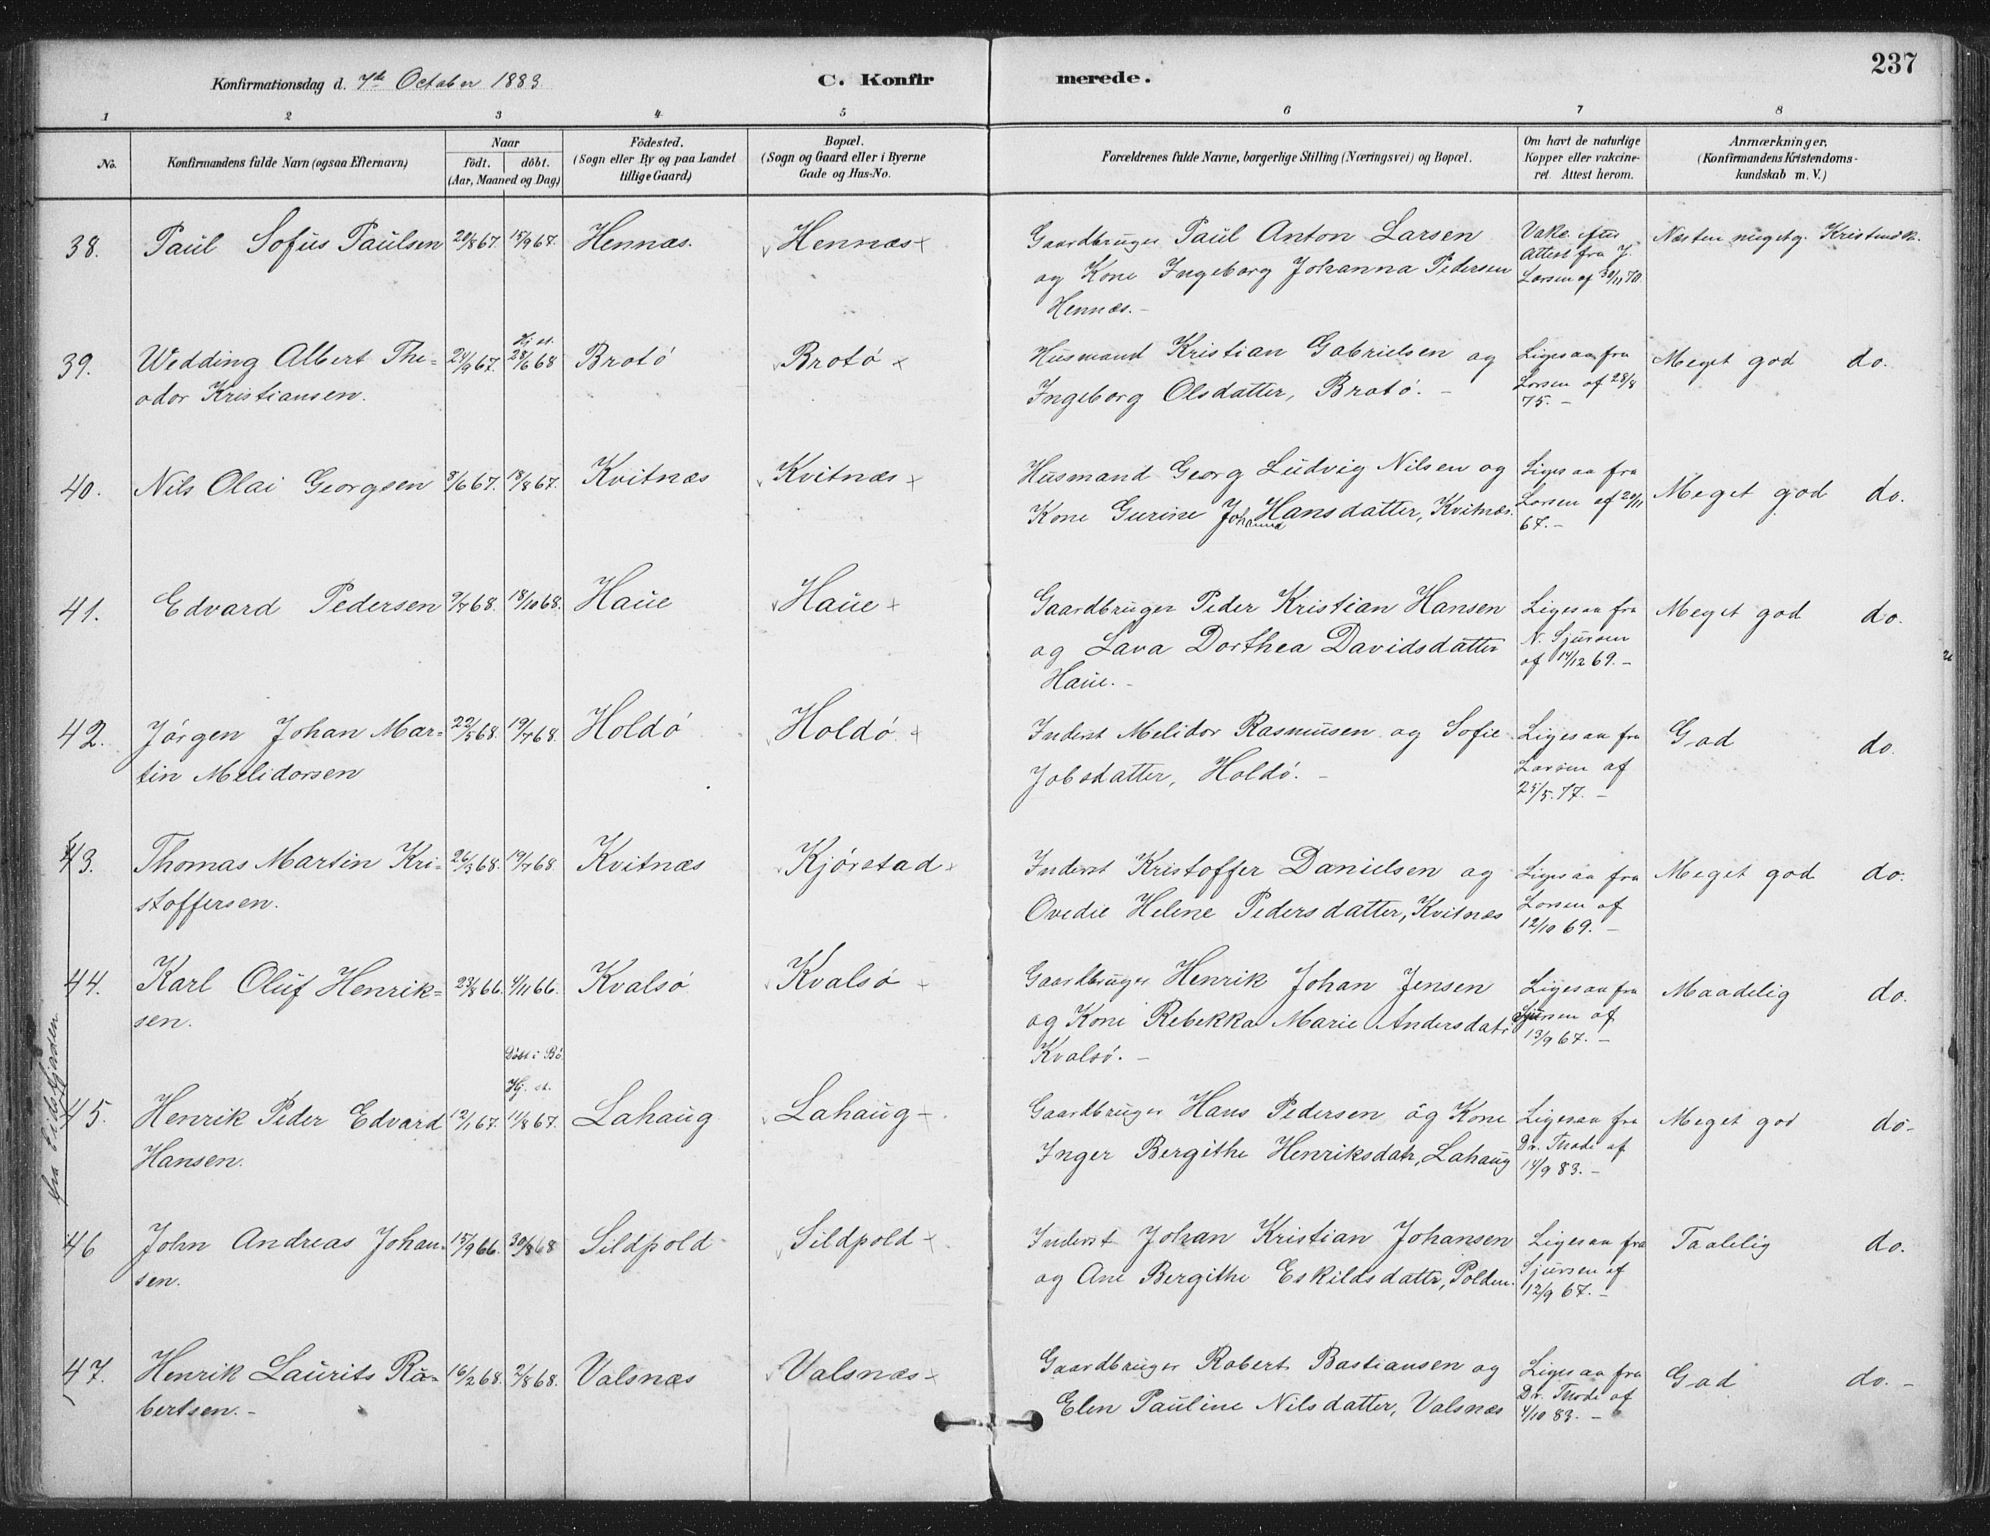 237
Konfirmationsdag d. 7de October 1883.
C. Konfirmerede.
1 2 3 4 5 6 7 8
No.
Konfirmandens fulde Navn (ogsaa Efternavn)
Naar
födt. döbt.
(Aar, Maaned og Dag)
Födested.
(Sogn eller By og paa Landet
tillige Gaard)
Bopæl.
(Sogn og Gaard eller i Byerne
Gade og Hus-No.
Forældrenes fulde Navne, borgerlige Stilling (Næringsvei) og Bopæl.
Om havt de naturlige
Kopper eller vakcine-
ret. Attest herom.
Anmærkninger.
(Konfirmandens Kristendoms-
kundskab m. V.)
38. Paul Sofus Paulsen 20/8 67. 15/9 67. Hennæs. Hennæs Gaardbruger Paul Anton Larsen Vakc. efter Næsten meget g. Kristendk.
og Kone Ingeborg Johanna Pedersen Attest fra J.
Hennæs. - Larsen af 30/11 70.
39. Wedding Albert The- 24/9 67. Hj. st. 28/6 68 Brotö Brotö Husmand Kristian Gabrielsen og Ligesaa fra Meget god do.
odor Kristiansen. Ingeborg Olsdatter, Brotö. - Larsen af 28/8
75. -
40. Nils Olai Georgsen 8/6 67. 18/8 67. Kvitnæs Kvitnæs Husmand Georg Ludvig Nilsen og Ligesaa fra Meget god do.
Kone Gurine Johanna Hansdatter, Kvitnæs. Larsen af 20/11
67. -
41. Edvard Pedersen 9/7 68. 18/10 68. Haue Haue Gaardbruger Peder Kristian Hansen Ligesaa fra Meget god do.
og Lava Dorthea Davidsdatter N. Sjursen
Haue. - af 14/12 69. -
42. Jörgen Johan Mar- 22/5 68. 19/7 68. Holdö Holdö Inderst Melidor Rasmusen og Sofie Ligesaa fra God do.
tin Melidorsen Jobsdatter, Holdö. - Larsen af
25/5. 77. -
43. Thomas Martin Kri- 26/3 68. 19/7 68. Kvitnæs Kjörstad Inderst Kristoffer Danielsen og Ligesaa fra Meget god do.
stoffersen. Ovedie Helene Pedersdatter, Kvitnæs Larsen af
12/10 69. -
44. Karl Oluf Henrik- 23/8 66. 4/11 66. Kvalsö Kvalsö Gaardbruger Henrik Johan Jensen Ligesaa fra Maadelig do.
sen. og Kone Rebekka Marie Andersdatr Sjursen af
Kvalsö. - 13/9 67. -
fra Eidsfjorden
Döbt i Bö
Hj. st.
45. Henrik Peder Edvard 12/1 67. 11/8 67. Lahaug Lahaug Gaardbruger Hans Pedersen og Kone Ligesaa fra Meget god do-
Hansen. Inger Bergithe Henriksdatr, Lahaug Dr. Thode af
14/9 83. -
46 John Andreas Johan- 15/9 66. 30/8 68 Sildpold Sildpold Inderst Johan Kristian Johansen Ligesaa fra Taalelig do.
sen. og Ane Bergithe Eskildsdattr, Polden. Sjursen af
12/9 67. -
47. Henrik Laurits Ro- 16/2 68. 2/8 68. Valsnæs Valsnæs Gaardbruger Robert Bastiansen og Ligesaa fra God do. -
bertsen. - Elen Pauline Nilsdatter, Valsnæs Dr. Thode af
4/10 83. -